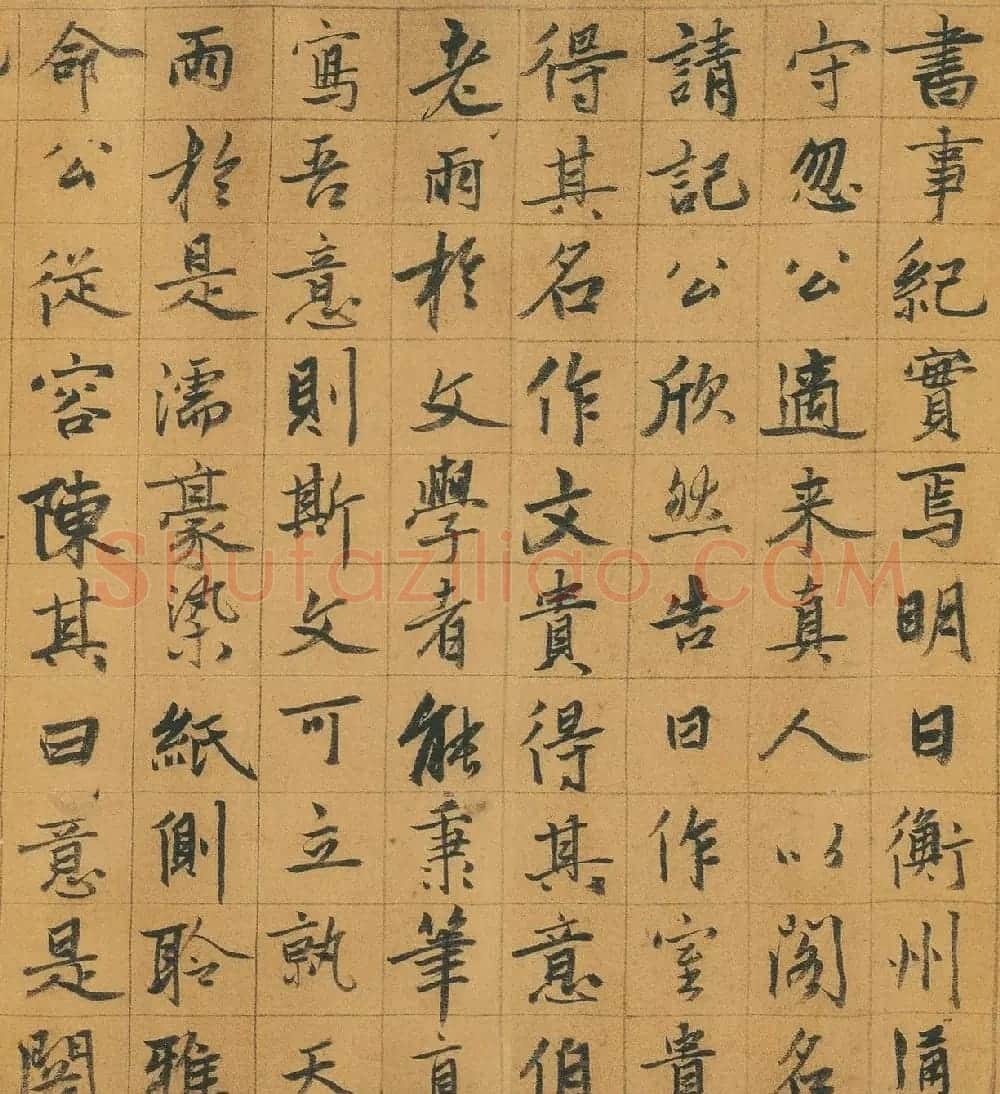 書事紀實焉明日衡州通
守忽公適来真人以閣名
請記公欣然告曰作室貴
得其名作文貴得其意伯
老雨於文學者能秉筆直
寫吾意則斯文可立孰天
雨於是濡豪染紙側聆雅
命公從容陳其曰意是閣
Shufaziliao.COM